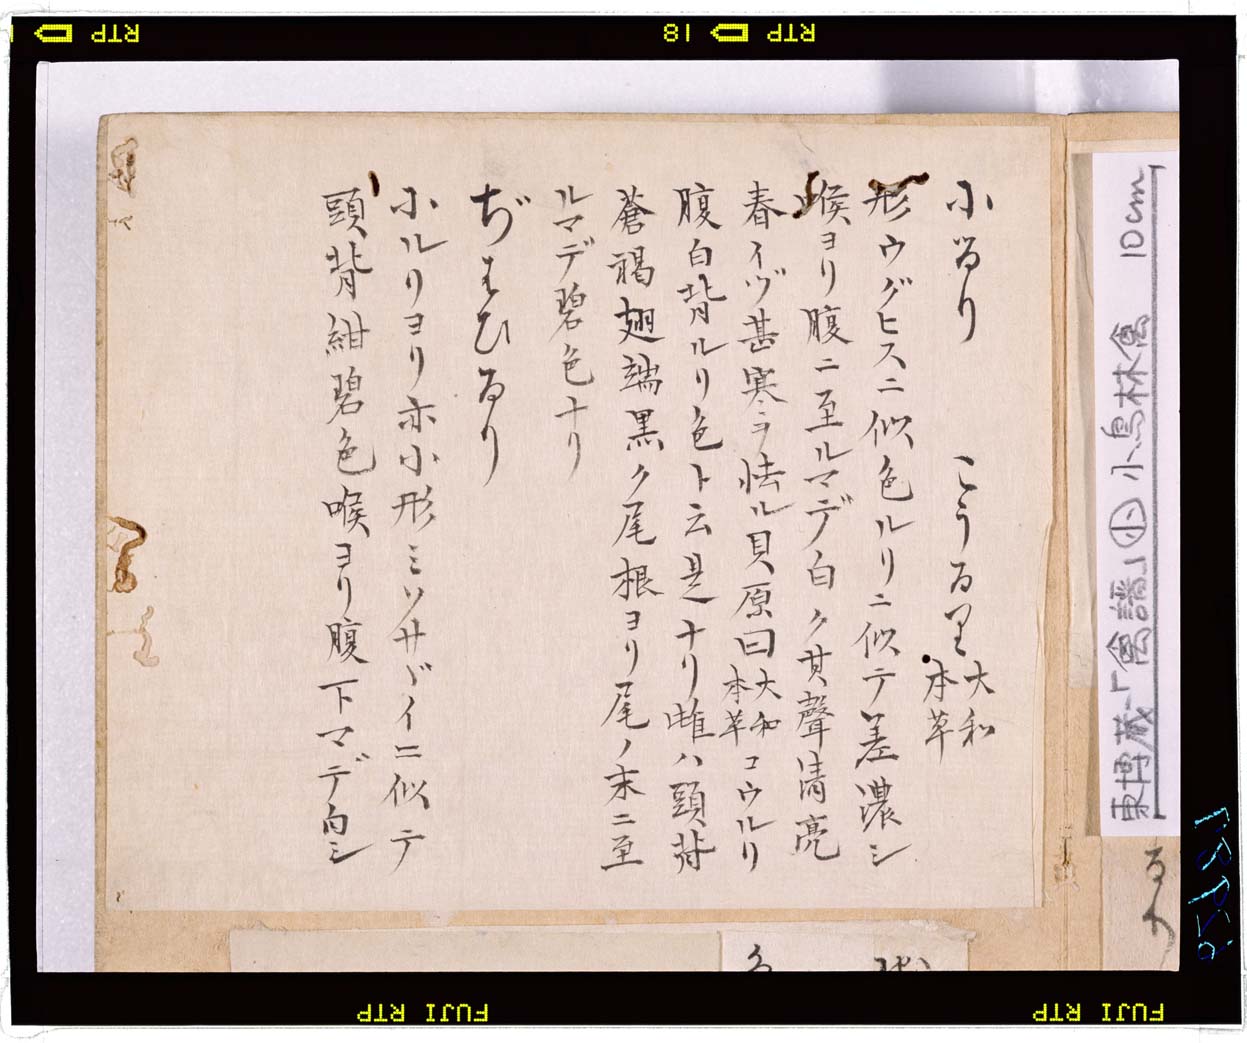 小るり　こうるり 大和本草
形ウグヒスニ似色ルリニ似テ差濃シ
喉ヨリ腹ニ至ルマデ白ク其聲清亮
春イヅ甚寒ヲ怯ル貝原曰 大和本草 コウルリ
腹白背ルリ色ト云是ナリ雌ハ頭背
蒼褐翅端黒ク尾根ヨリ尾ノ末ニ至
ルマデ碧色ナリ
ぢまひるり
小ルリヨリ亦小形ミソサヾイニ似テ
頭背紺碧色喉ヨリ腹下マデ白シ
東博蔵「禽譜」㊦ 小鳥林禽 10cm
るり
RTP
18 RTP
FUJI RTP
FUJI RTP